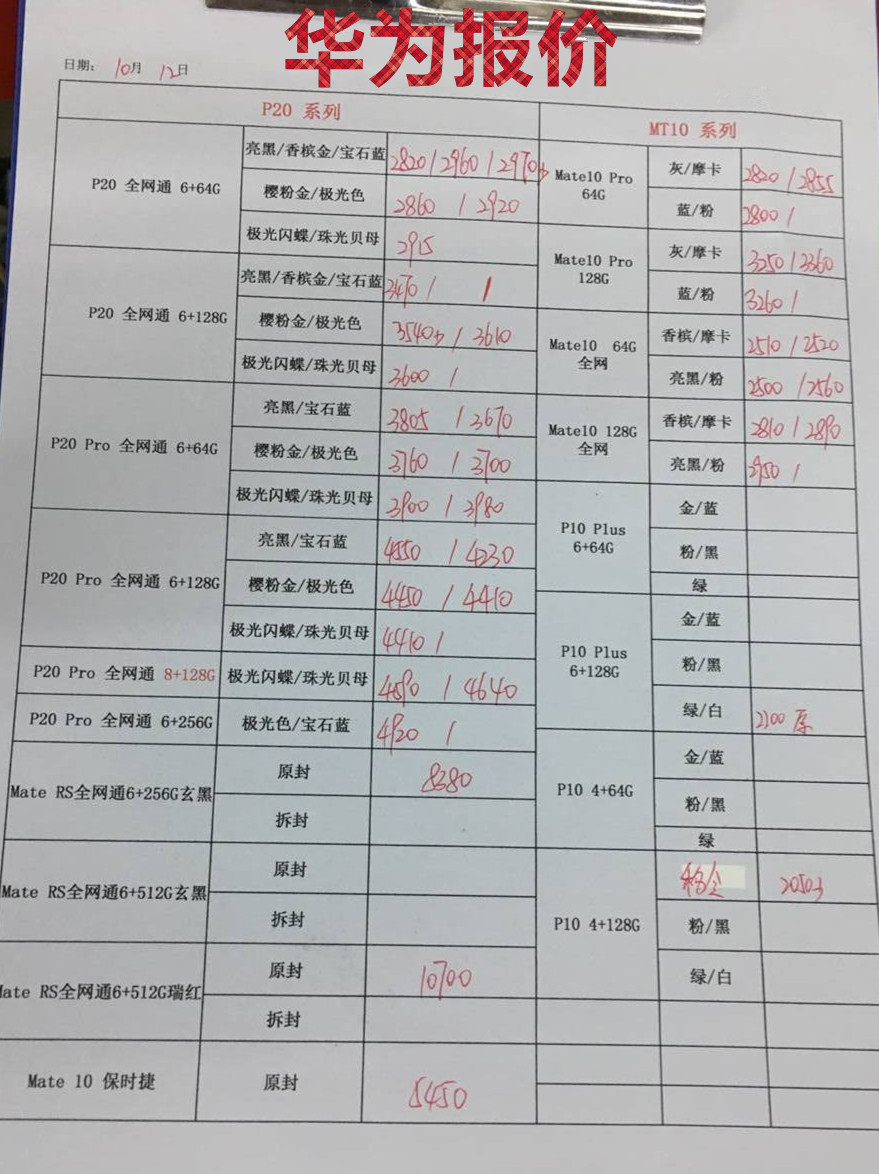 华为报价
日期: 10月 12日
P20 系列
P20 全网通 6+64G
亮黑/香槟金/宝石蓝 2820/2960/2970
樱粉金/极光色 2860 / 2920
极光闪蝶/珠光贝母 2915
P20 全网通 6+128G
亮黑/香槟金/宝石蓝 3470 / /
樱粉金/极光色 3540 / 3610
极光闪蝶/珠光贝母 3600 /
P20 Pro 全网通 6+64G
亮黑/宝石蓝 3805 / 3670
樱粉金/极光色 3760 / 3700
极光闪蝶/珠光贝母 3900 / 3980
P20 Pro 全网通 6+128G
亮黑/宝石蓝 4550 / 4230
樱粉金/极光色 4450 / 4410
极光闪蝶/珠光贝母 4410 /
P20 Pro 全网通 8+128G 极光闪蝶/珠光贝母 4590 / 4640
P20 Pro 全网通 6+256G 极光色/宝石蓝 4920 /
Mate RS全网通6+256G玄黑
原封 8380
拆封
Mate RS全网通6+512G玄黑
原封
拆封
Mate RS全网通6+512G瑞红
原封 10700
拆封
Mate 10 保时捷 原封 5450
MT10 系列
Mate10 Pro
64G
灰/摩卡 2820 / 2855
蓝/粉 2800 /
Mate10 Pro
128G
灰/摩卡 3250 / 3360
蓝/粉 3260 /
Mate10 64G
全网
香槟/摩卡 2510 / 2520
亮黑/粉 2500 / 2560
Mate10 128G
全网
香槟/摩卡 2810 / 2890
亮黑/粉 2950 /
P10 Plus
6+64G
金/蓝
粉/黑
绿
P10 Plus
6+128G
金/蓝
粉/黑
绿/白 2100 原
P10 4+64G
金/蓝
粉/黑
绿
P10 4+128G
金 2050
粉/黑
绿/白